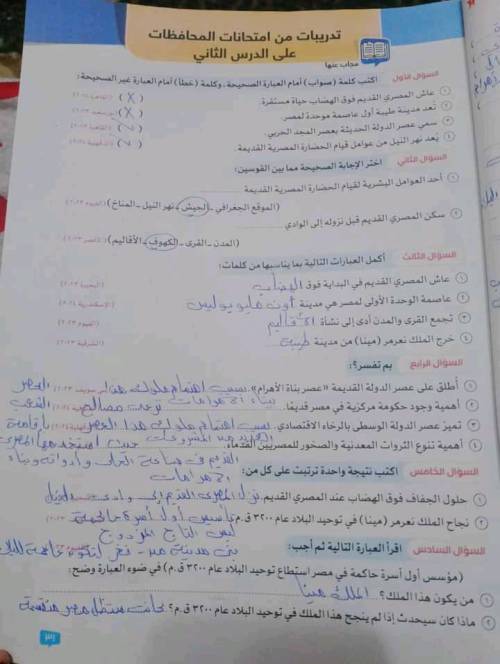 تدريبات من امتحانات المحافظات
على الدرس الثاني
مجاب عنها
السؤال الأول اكتب كلمة (صواب) أمام العبارة الصحيحة، وكلمة (خطأ) أمام العبارة غير الصحيحة:
١ عاش المصري القديم فوق الهضاب حياة مستقرة. (X)
٢ تُعد مدينة طيبة أول عاصمة موحدة لمصر. (X)
٣ سمي عصر الدولة الحديثة بعصر المجد الحربي. (✓)
٤ يُعد نهر النيل من عوامل قيام الحضارة المصرية القديمة. (✓)
السؤال الثاني اختر الإجابة الصحيحة مما بين القوسين:
١ أحد العوامل البشرية لقيام الحضارة المصرية القديمة
(الموقع الجغرافي - الجيش - نهر النيل - المناخ) (الفيوم ٢٠٢٣)
٢ سكن المصري القديم قبل نزوله إلى الوادي
(المدن - القرى - الكهوف - الأقاليم)
السؤال الثالث أكمل العبارات التالية بما يناسبها من كلمات:
١ عاش المصري القديم في البداية فوق الهضاب
٢ عاصمة الوحدة الأولى لمصر هي مدينة أون هليوبوليس (الإسكندرية
٣ تجمع القرى والمدن أدى إلى نشأة الأقاليم (الفيوم ٢٠٢٣)
٤ خرج الملك نعرمر (مينا) من مدينة طيبة (الشرقية
السؤال الرابع بم تفسر؟:
١ أطلق على عصر الدولة القديمة «عصر بناة الأهرام». بسبب اهتمام ملوك هذا العصر
بناء الأهرامات
٢ أهمية وجود حكومة مركزية في مصر قديمًا.
٣ تميز عصر الدولة الوسطى بالرخاء الاقتصادي. بسبب اهتمام ملوك هذا العصر بإقامة
المشروعات
٤ أهمية تنوع الثروات المعدنية والصخور للمصريين القدماء. حيث استخدمها المصري
القديم في صناعة الحلى وأدواته وبناء
الأهرامات
السؤال الخامس اكتب نتيجة واحدة ترتبت على كل من:
١ حلول الجفاف فوق الهضاب عند المصري القديم. نزل المصرى القديم إلى وادى النيل
٢ نجاح الملك نعرمر (مينا) في توحيد البلاد عام ٣٢٠٠ ق.م. تأسيس أول أسرة حاكمة
لبس التاج المزدوج
بنى مدينة
السؤال السادس اقرأ العبارة التالية ثم أجب:
(مؤسس أول أسرة حاكمة في مصر استطاع توحيد البلاد عام ٣٢٠٠ ق.م) في ضوء العبارة وضح:
١ من يكون هذا الملك؟ الملك مينا
٢ ماذا كان سيحدث إذا لم ينجح هذا الملك في توحيد البلاد عام ٣٢٠٠ ق.م؟ كانت ستظل مصر منقسمة
٣١